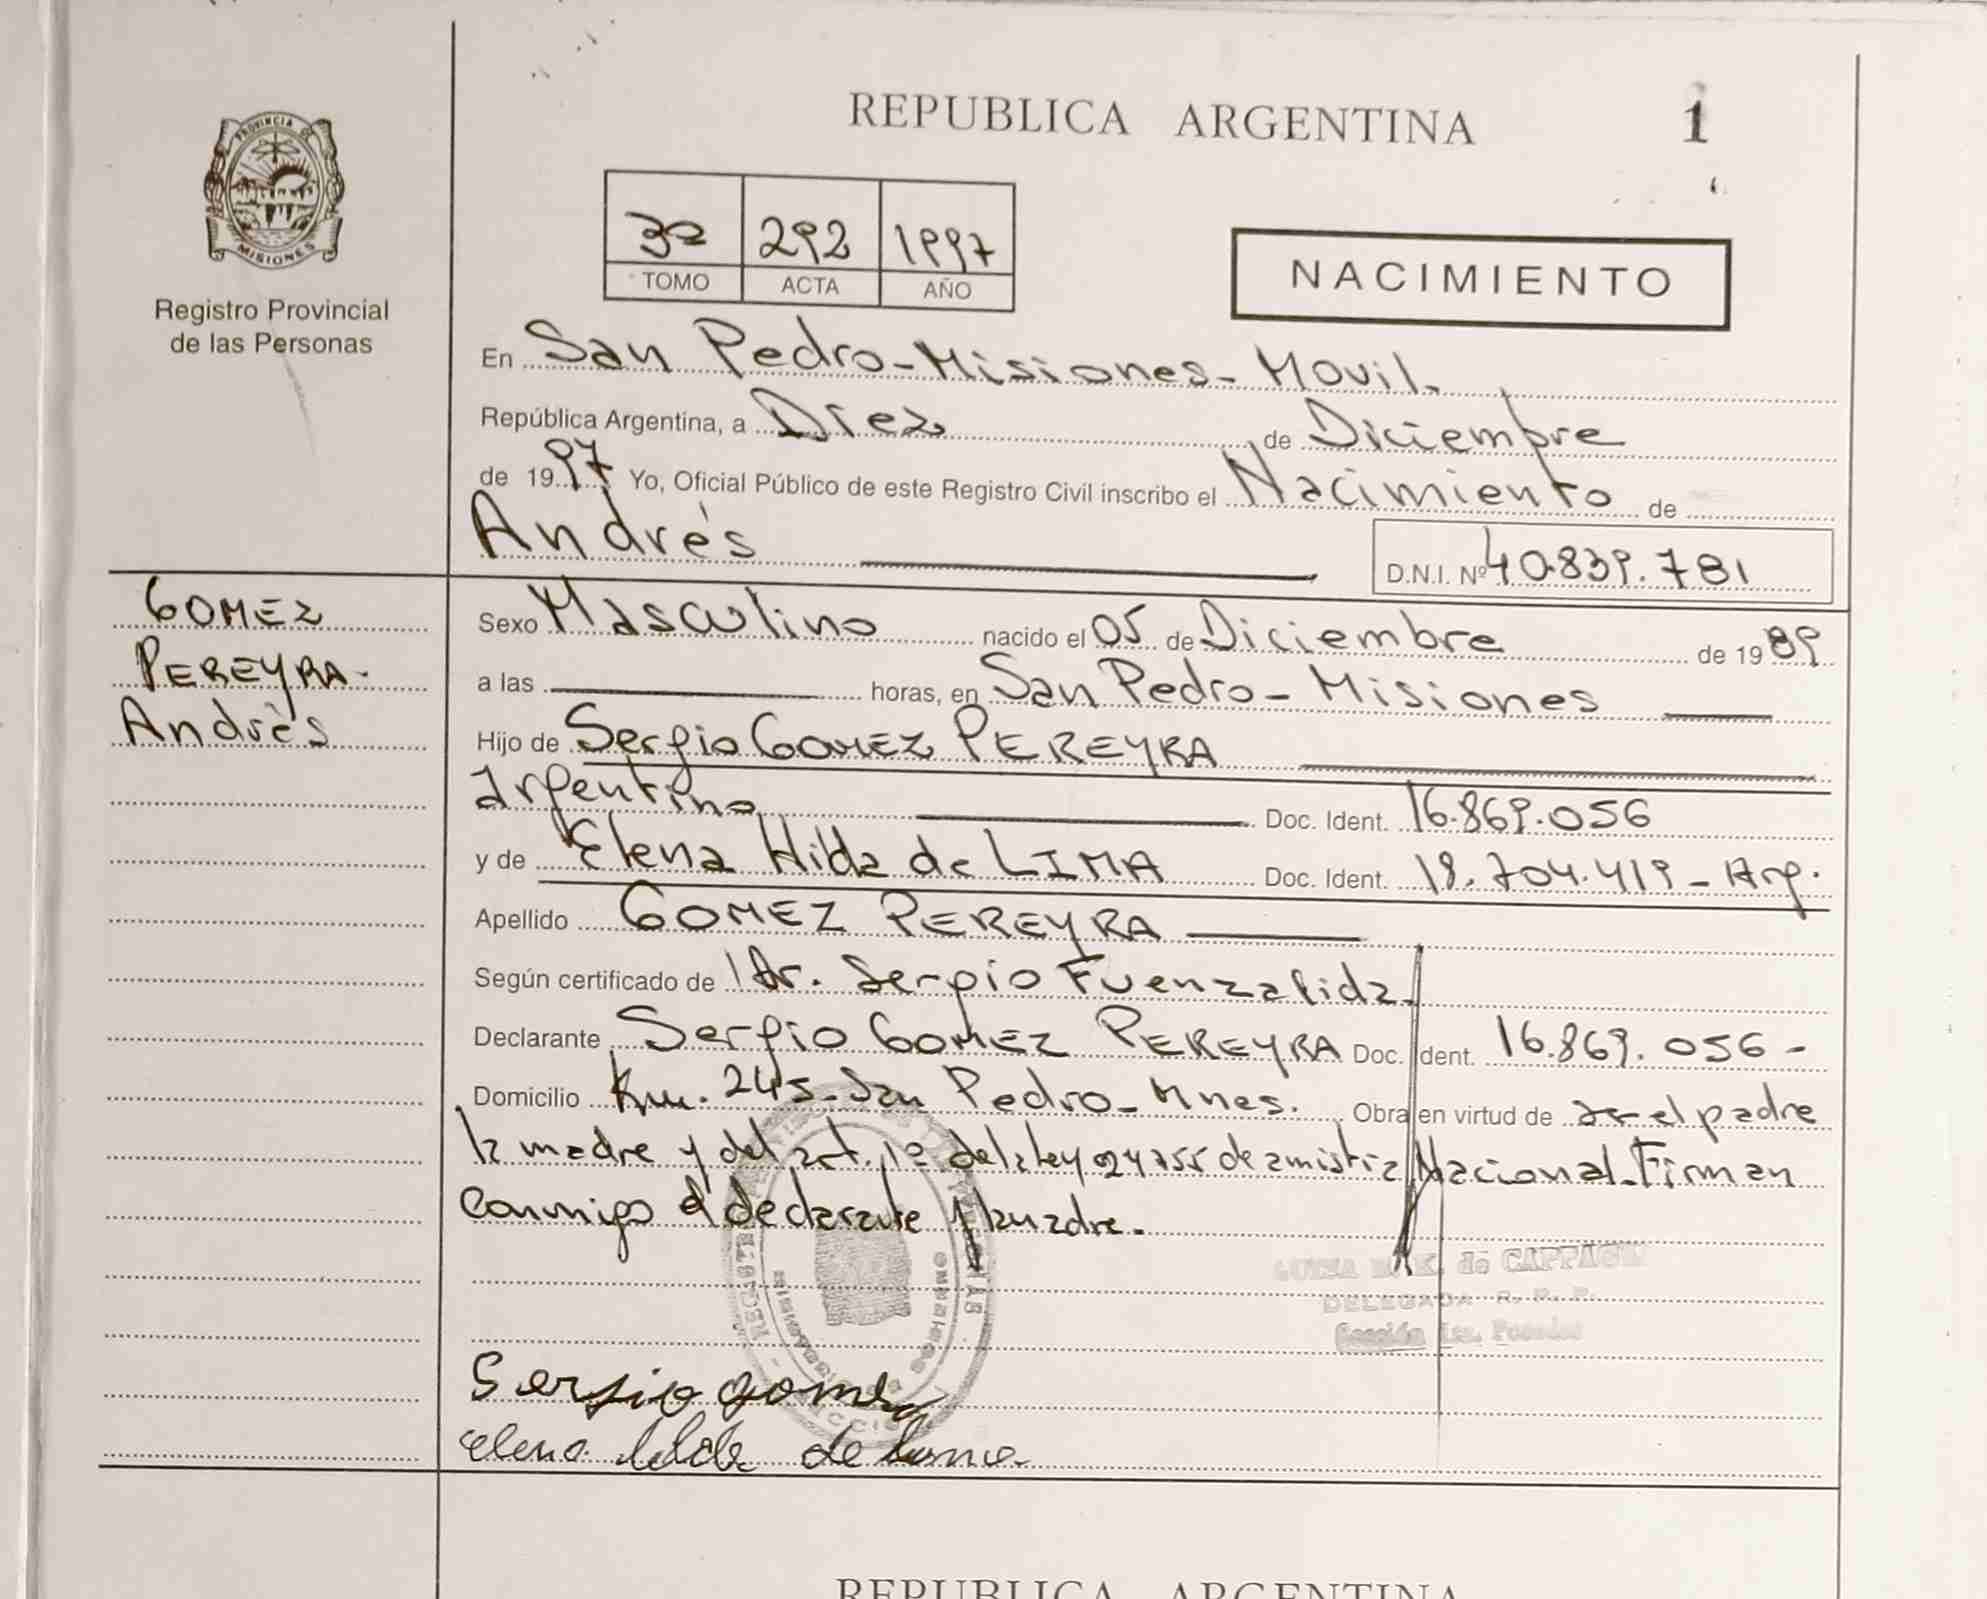 REPUBLICA ARGENTINA
1
PROVINCIA DE
MISIONES
Registro Provincial
de las Personas
3º 292 1997
TOMO ACTA AÑO
NACIMIENTO
En San Pedro-Misiones-Movil.
República Argentina, a Diez de Diciembre
de 1997 Yo, Oficial Público de este Registro Civil inscribo el Nacimiento de
Andrés
D.N.I. Nº 40.839.781
GOMEZ
PEREYRA-
Andrés
Sexo Masculino nacido el 05 de Diciembre de 1989
a las horas, en San Pedro-Misiones
Hijo de Sergio GOMEZ PEREYRA
Argentino Doc. Ident. 16.869.056
y de Elena Hilda de LIMA Doc. Ident. 18.704.419 - Arg.
Apellido GOMEZ PEREYRA
Según certificado de Dr. Sergio Fuenzalida.
Declarante Sergio GOMEZ PEREYRA Doc. Ident. 16.869.056-
Domicilio Km. 245-San Pedro-Mnes. Obra en virtud de ser el padre
la madre y del art. 1º de la ley 24755 de amistia Nacional. Firman
conmigo el declarante y la madre.
de CAPPAGN
DELEGADA R. P. P.
Sección
Sergio gomez
elena ilda de lima
REPUBLICA ARGENTINA